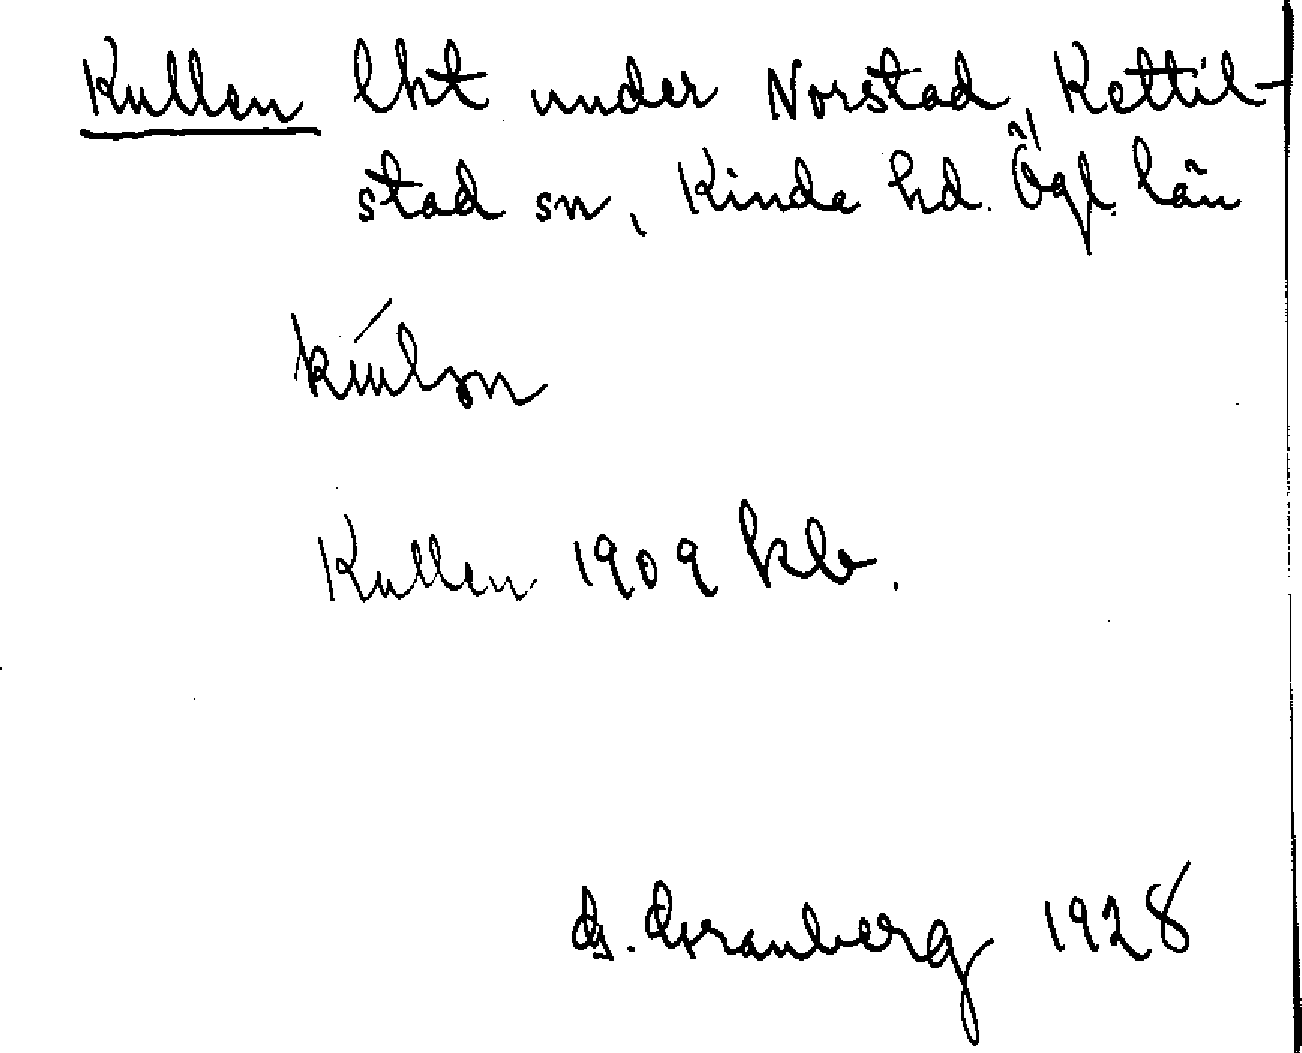 Kullen lht under Norstad, Kettil-
stad sn, Kinda hd. Ögl. län
Kullen 1909 kb.
G. Granberg 1928